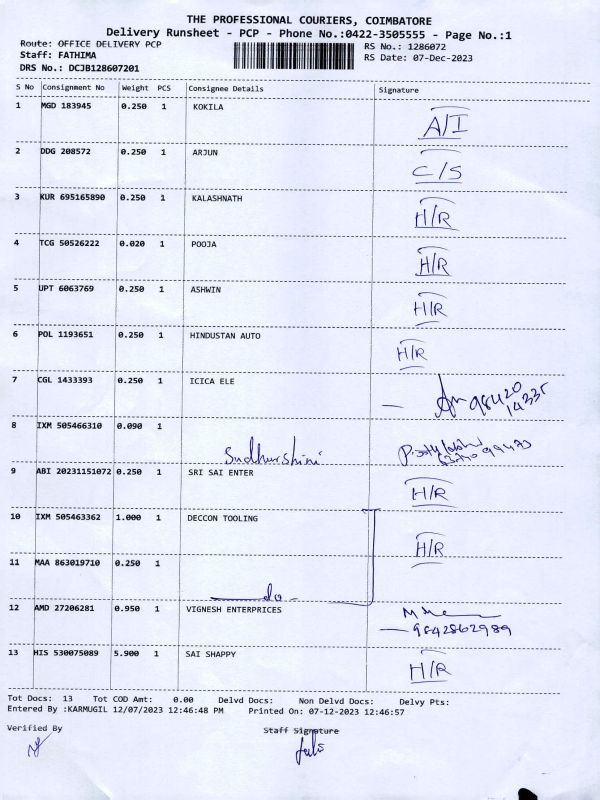 THE PROFESSIONAL COURIERS, COIMBATORE
Delivery Runsheet - PCP - Phone No.:0422-3505555 - Page No.:1
Route: OFFICE DELIVERY PCP RS No.: 1286072
Staff: FATHIMA RS Date: 07-Dec-2023
DRS No.: DCJB128607201
S No Consignment No Weight PCS Consignee Details Signature
1 MGD 183945 0.250 1 KOKILA A/I
2 DDG 208572 0.250 1 ARJUN C/S
3 KUR 695165890 0.250 1 KALASHNATH H/R
4 TCG 50526222 0.020 1 POOJA H/R
5 UPT 6063769 0.250 1 ASHWIN H/R
6 POL 1193651 0.250 1 HINDUSTAN AUTO H/R
7 CGL 1433393 0.250 1 ICICA ELE 98420
14335
8 IXM 505466310 0.090 1
Sudhurshini
9 ABI 20231151072 0.250 1 SRI SAI ENTER H/R
10 IXM 505463362 1.000 1 DECCON TOOLING H/R
11 MAA 863019710 0.250 1
do
12 AMD 27206281 0.950 1 VIGNESH ENTERPRICES
9842862989
13 HIS 530075089 5.900 1 SAI SHAPPY H/R
Tot Docs: 13 Tot COD Amt: 0.00 Delvd Docs: Non Delvd Docs: Delvy Pts:
Entered By :KARMUGIL 12/07/2023 12:46:48 PM Printed On: 07-12-2023 12:46:57
Verified By Staff Signature